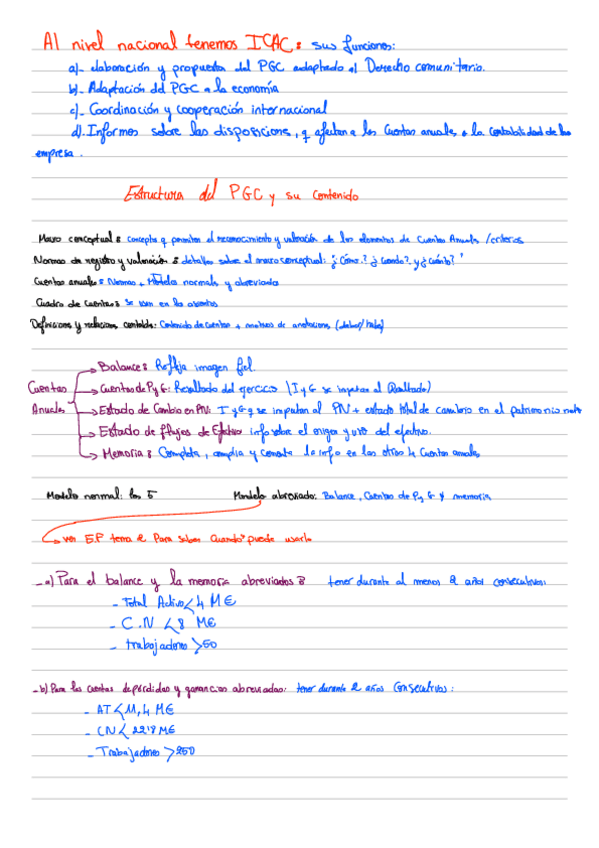 Al nivel nacional tenemos ICAC: sus funciones:
a)- elaboración y propuesta del PGC adaptado al Derecho comunitario.
b)- Adaptación del PGC a la economía
c)- Coordinación y cooperación internacional
d). Informes sobre las disposicions, q afectan a las Cuentas anuales, a la contabilidad de las
empresa.
Estructura del PGC y su contenido
Marco conceptual: concepto q permiten el reconocimiento y valoración de los elementos de Cuentas Anuales /criterios
Normas de registro y valoración: detalles sobre el marco conceptual: ¿Cómo? ¿cuando? y ¿cuánto?
Cuentas anuales: Normas + Modelos normals y abreviados
Cuadro de Cuentas: se usan en los asientos
Definiciones y relaciones contables: Contenido de cuentas + motivos de anotaciones (debe/haber)
Cuentas Anuales
→ Balance: Refleja imagen fiel.
→ Cuentas de P y G: Resultado del ejercicio (I y G se imputan al Resultado)
→ Estado de Cambio en PN: I y G q se imputan al PN + estado total de cambio en el patrimonio neto
→ Estado de flujos de Efectivo info sobre el origen y uso del efectivo.
→ Memoria: Completa, amplia y comenta la info en los otros 4 Cuentas anuales
Modelo normal: los 5 Modelo abreviado: Balance, Cuentas de P y G y memoria
→ ver E.P tema 2 Para saber Cuando puede usarlo
- a) Para el balance y la memoria abreviados: tener durante al menos 2 años consecutivos:
- Total Activo < 4 M€
- C.N < 8 M€
- trabajadores > 50
- b) Para las cuentas de pérdidas y ganancias abreviadas: tener durante 2 años consecutivos:
- AT < 11,4 M€
- CN < 22'8 M€
- Trabajadores > 250